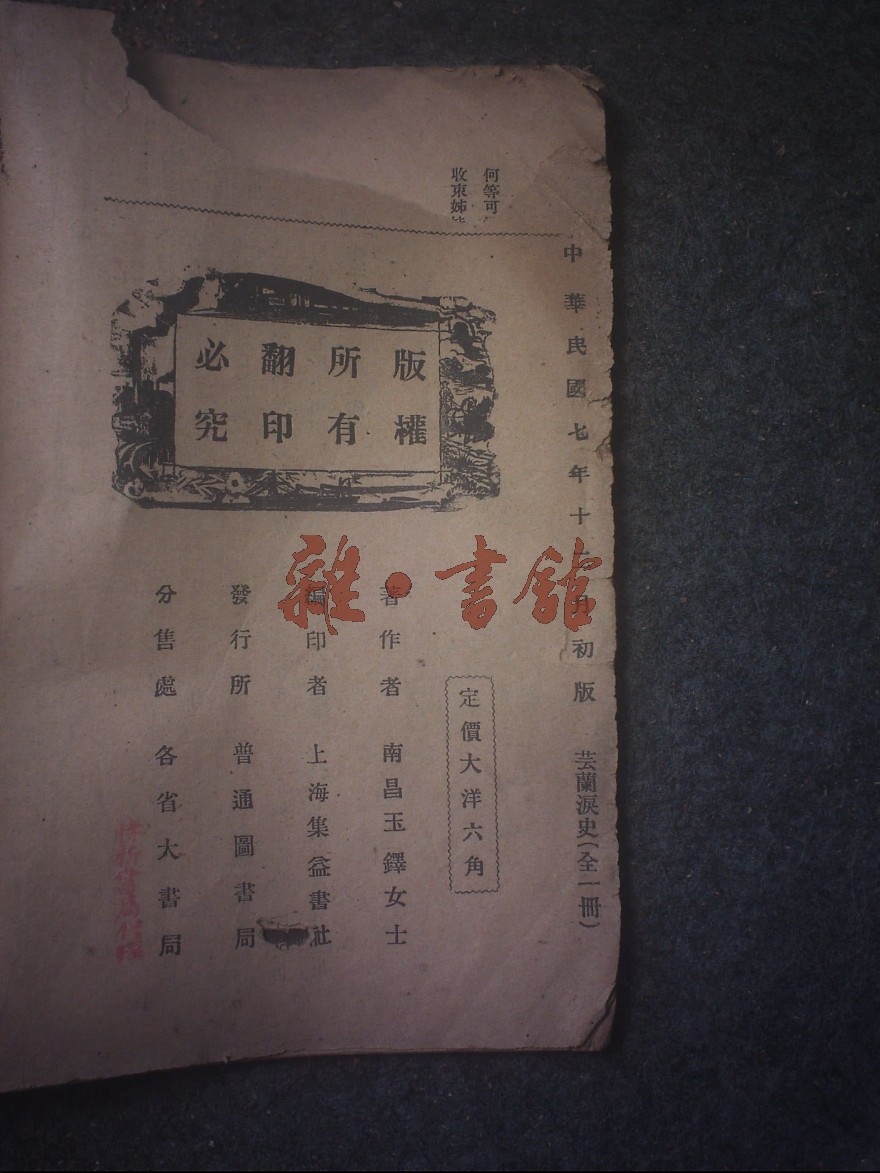 何等可
收束姊妹
中華民國七年十二月初版
芸蘭淚史(全一冊)
版權
所有
翻印
必究
定價大洋六角
著作者 南昌玉鐸女士
編印者 上海集益書社
發行所 普通圖書局
分售處 各省大書局
雜·書館